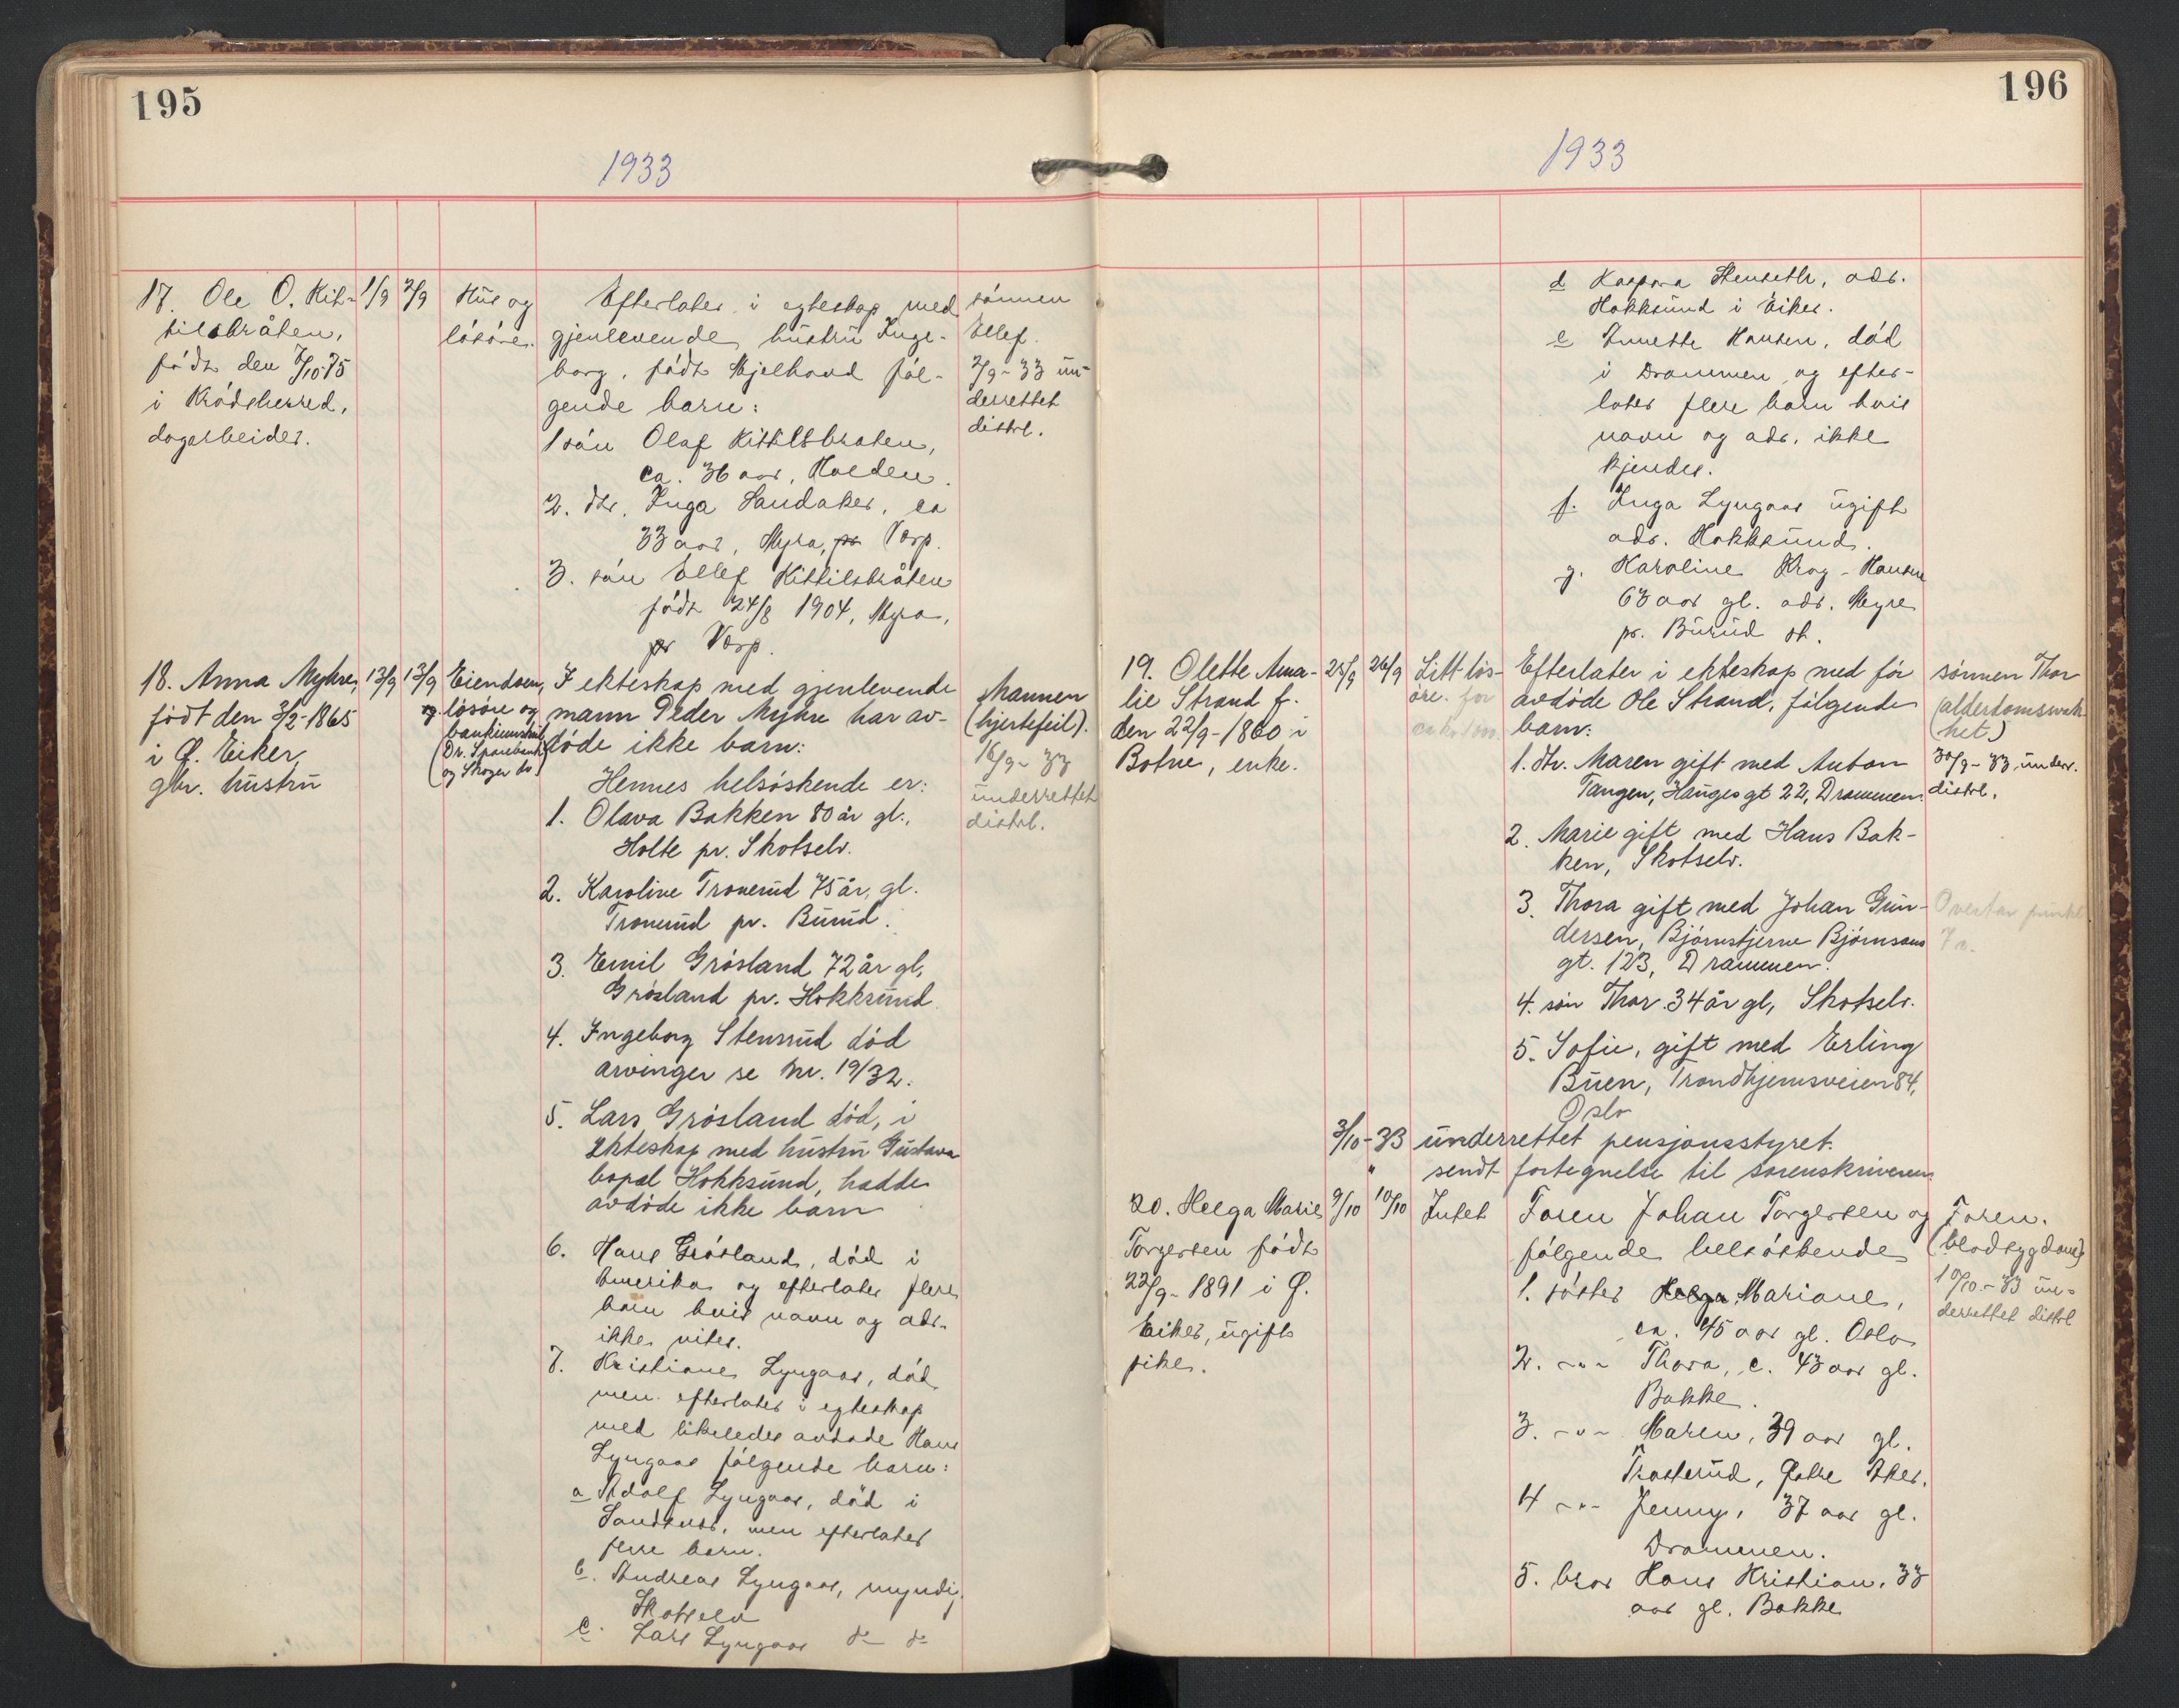 195
1933
17. Ole O. Kit-
tilsbråten,
født den 7/10 75
i Krødsherred,
dagarbeider.
1/9
2/9
Hus og
løsøre.
Efterlater i egteskap med
gjenlevende hustru Inge-
borg, født Mjelhovd føl-
gende barn:
1 søn Olaf Kittilsbraten,
ca. 36 aar, Halden.
2. dtr. Inga Sandaker, ca
33 aar, Myra, pr Vorp.
3. søn Ellef Kittilsbråten
født 24/8 1904, Myra,
pr Vorp.
sønnen
Ellef.
2/9-33 un-
derrettet
distrl.
18. Anna Myhre,
født den 3/2-1865
i Ø. Eiker,
gbr. hustru
13/9
13/9
Eiendom,
og løsøre og
bankinnskudd
(Dr. Sparebank
og Skoger do.)
I ekteskap med gjenlevende
mann Peder Myhre har av-
døde ikke barn:
Hennes helsøskende er:
1. Olava Bakken 80 år gl.,
Holte pr. Skotselv.
2. Karoline Tronerud 75 år, gl.
Tronerud pr. Burud.
3. Emil Grøsland 72 år gl,
Grøsland pr. Hokksund.
4. Ingeborg Stensrud død
arvinger se nr. 19/32.
5. Lars Grøsland død, i
ekteskap med hustru Gustava
bopæl Hokksund, hadde
avdøde ikke barn
6. Hans Grøsland, død i
Amerika og efterlater flere
barn hvis navn og adr.
ikke vites.
7. Kristiane Lyngaas, død
men efterlater i egteskap
med likeledes avdøde Hans
Lyngaas følgende barn:
a Adolf Lyngaas, død i
Sandsvær, men efterlater
flere barn.
b. Andreas Lyngaas, myndig,
Skotselv
c. Lars Lyngaas do do
Mannen
(hjertefeil).
16/9-33
underrettet
distrl.
196
1933
d Kaspara Stenseth, adr.
Hokksund i Eiker.
e Annette Hansen, død
i Drammen og efter-
later flere barn hvis
navn og adr. ikke
kjendes.
f. Inga Lyngaas ugift
adr. Hokksund.
g. Karoline Krog-Hansen
63 aar gl. adr. Myre
pr. Burud st.
19. Olette Ama-
lie Strand f.
den 22/9-1860 i
Botne, enke.
25/9
26/9
Litt løs-
øre. for
Efterlater i ekteskap med før
avdøde Ole Strand, følgende
barn:
1. dtr. Maren gift med Anton
Tangen, Hauges gt 22, Drammen.
2. Marie gift med Hans Bak-
ken, Skotselv.
3. Thora gift med Johan Gun-
dersen, Bjørnstjerne Bjørnsons
gt. 123, Drammen.
4. søn Thor. 34 år gl, Skotselv.
5. Sofie, gift med Erling
Buen, Trondhjemsveien 84,
Oslo
sønnen Thor
(alderdomssvak-
het)
30/9-33 underr.
distrl.
3/10-33 underrettet pensjonsstyret.
" sendt fortegnelse til sorenskriveren
20. Helga Marie
Torgersen født
22/9-1891 i Ø.
Eiker, ugift
pike.
9/10
10/10
Intet
Faren Johan Torgersen og
følgende helsøskende
1. søster Helga Mariane,
ca. 45 aar gl. Oslo
2. -"- Thora, c. 43 aar gl.
Bakke.
3. -"- Maren, 39 aar gl.
Trosterud, Østre Aker.
4 -"- Jenny, 37 aar gl.
Drammen.
5. bror Hans Kristian, 33
aar gl. Bakke
Faren.
(blodsygdom)
10/10-33 un-
derrettet distrl